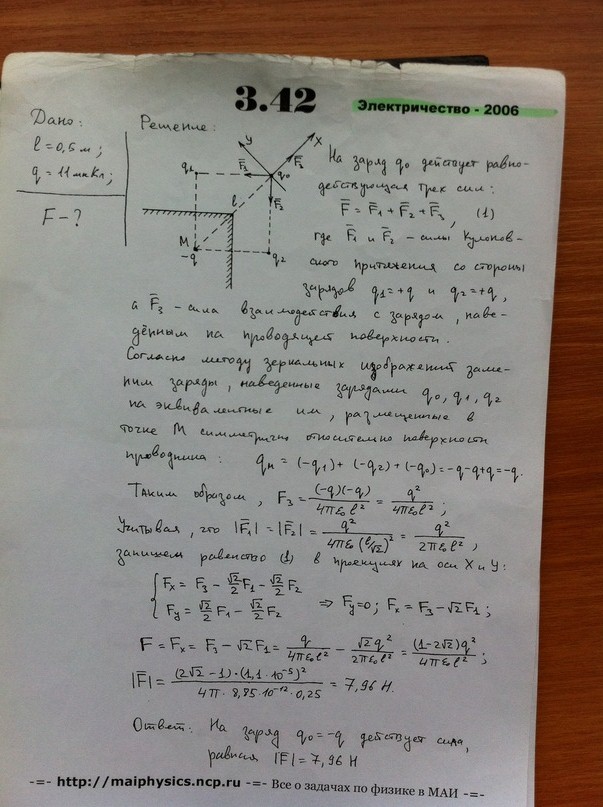 3.42
Электричество - 2006
Дано:
l = 0,5 м;
q = 11 мкКл;
F - ?
Решение:
У
X
q1
F̄3
F̄2
q0
F̄2
l
M
-q
q2
На заряд q0 действует равно-
действующая трех сил:
F̄ = F̄1 + F̄2 + F̄3, (1)
где F̄1 и F̄2 - силы Кулонов-
ского притяжения со стороны
зарядов q1=+q и q2=+q,
а F̄3 - сила взаимодействия с зарядом, наве-
дённым на проводящей поверхности.
Согласно методу зеркальных изображений заме-
ним заряды, наведенные зарядами q0, q1, q2
на эквивалентные им, размещенные в
точке M симметрично относительно поверхности
проводника: qM = (-q1) + (-q2) + (-q0) = -q-q+q = -q.
Таким образом, F3 = (-q)(-q)/4πε0l² = q²/4πε0l²;
Учитывая, что |F̄1| = |F̄2| = q²/4πε0(l/√2)² = q²/2πε0l²,
запишем равенство (1) в проекциях на оси X и У:
{ Fx = F3 - √2/2 F1 - √2/2 F2
Fy = √2/2 F1 - √2/2 F2 ⇒ Fy=0; Fx = F3 - √2F1;
F = Fx = F3 - √2F1 = q/4πε0l² - √2q²/2πε0l² = (1-2√2)q²/4πε0l²;
|F̄| = (2√2-1)·(1,1·10⁻⁵)²/4π·8,85·10⁻¹²·0,25 = 7,96 Н.
Ответ: На заряд q0=-q действует сила,
равная |F̄| = 7,96 Н
-=- http://maiphysics.ncp.ru -=- Все о задачах по физике в МАИ -=-